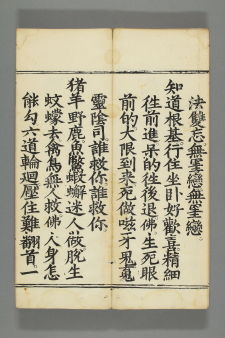 法雙忘無罣戀無罣戀
知道根基行住坐卧好歡喜精細
徃前進呆的徃後退佛生死眼
前的大限到來死做嗞牙鬼
靈隂司誰救你誰救你
猪羊野鹿魚鱉蝦蠏迷人做脫生
蚊蠓去禽鳥無人救佛人身怎
能勾六道輪廻壓住難翻首一